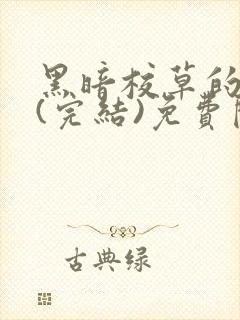 黑暗校草的
(完結)免費
古典缘